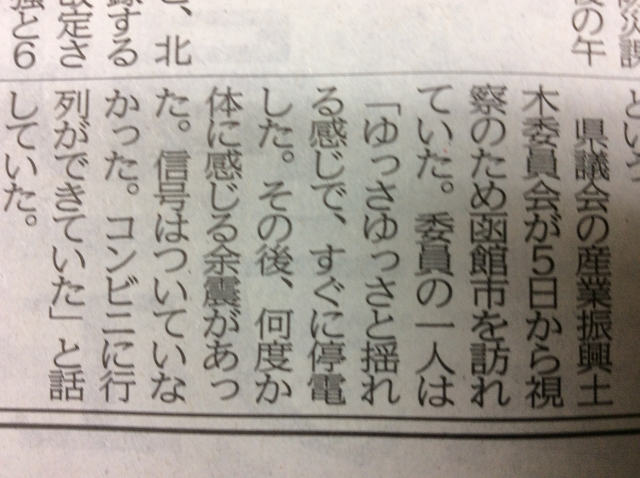 災課
の午
、北
する
改定さ
と6
県議会の産業振興土
木委員会が5日から視
察のため函館市を訪れ
ていた。委員の一人は
「ゆっさゆっさと揺れ
る感じで、すぐに停電
した。その後、何度か
体に感じる余震があっ
た。信号はついていな
かった。コンビニに行
列ができていた」と話
していた。